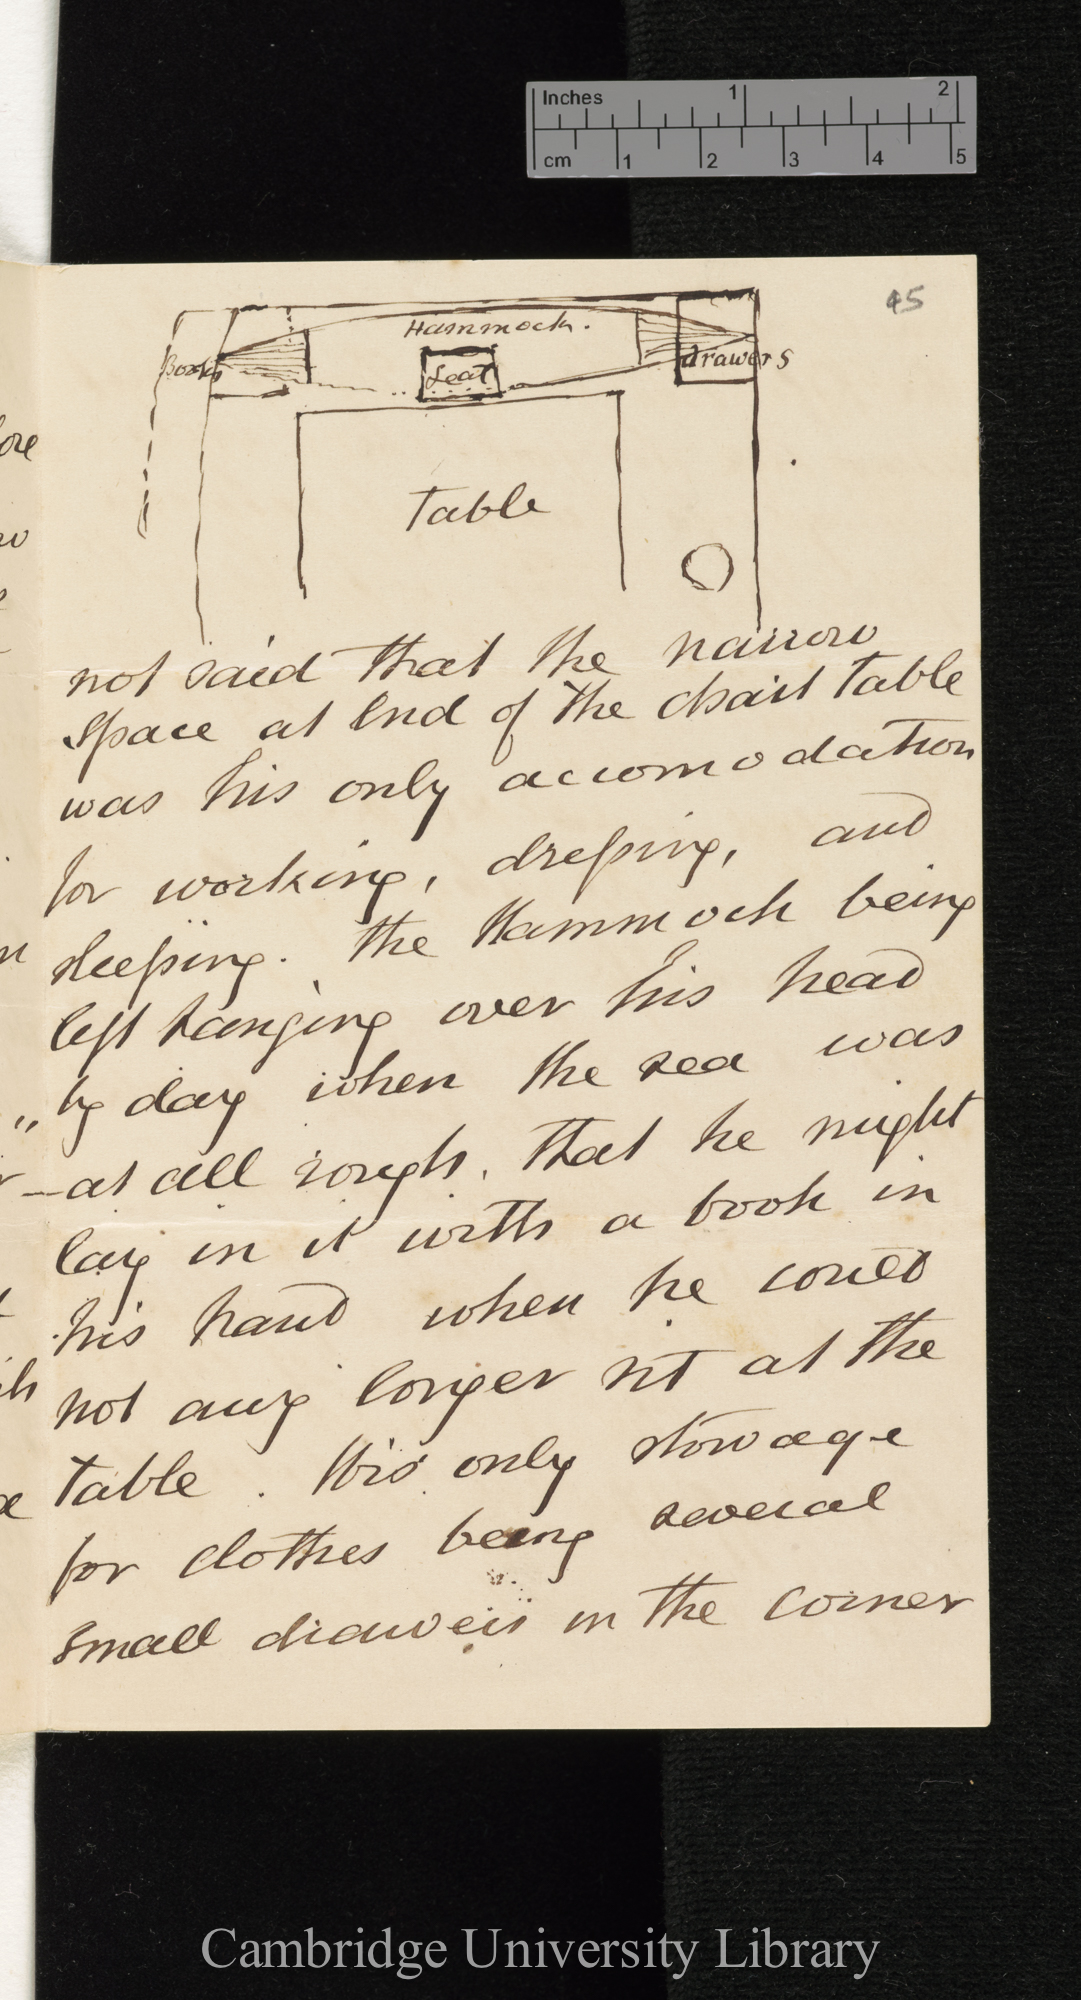 Inches 1 2
cm 1 2 3 4 5
45
Hammock.
Books
Seat
drawers
Table
not said that the narrow
space at End of the chart table
was his only accomodation
for working, dressing, and
sleeping. The Hammock being
left hanging over his head
by day when the sea was
at all rough, that he might
lay in it with a book in
his hand when he could
not any longer sit at the
table. His only stowage
for clothes being several
small drawers in the corner
Cambridge University Library